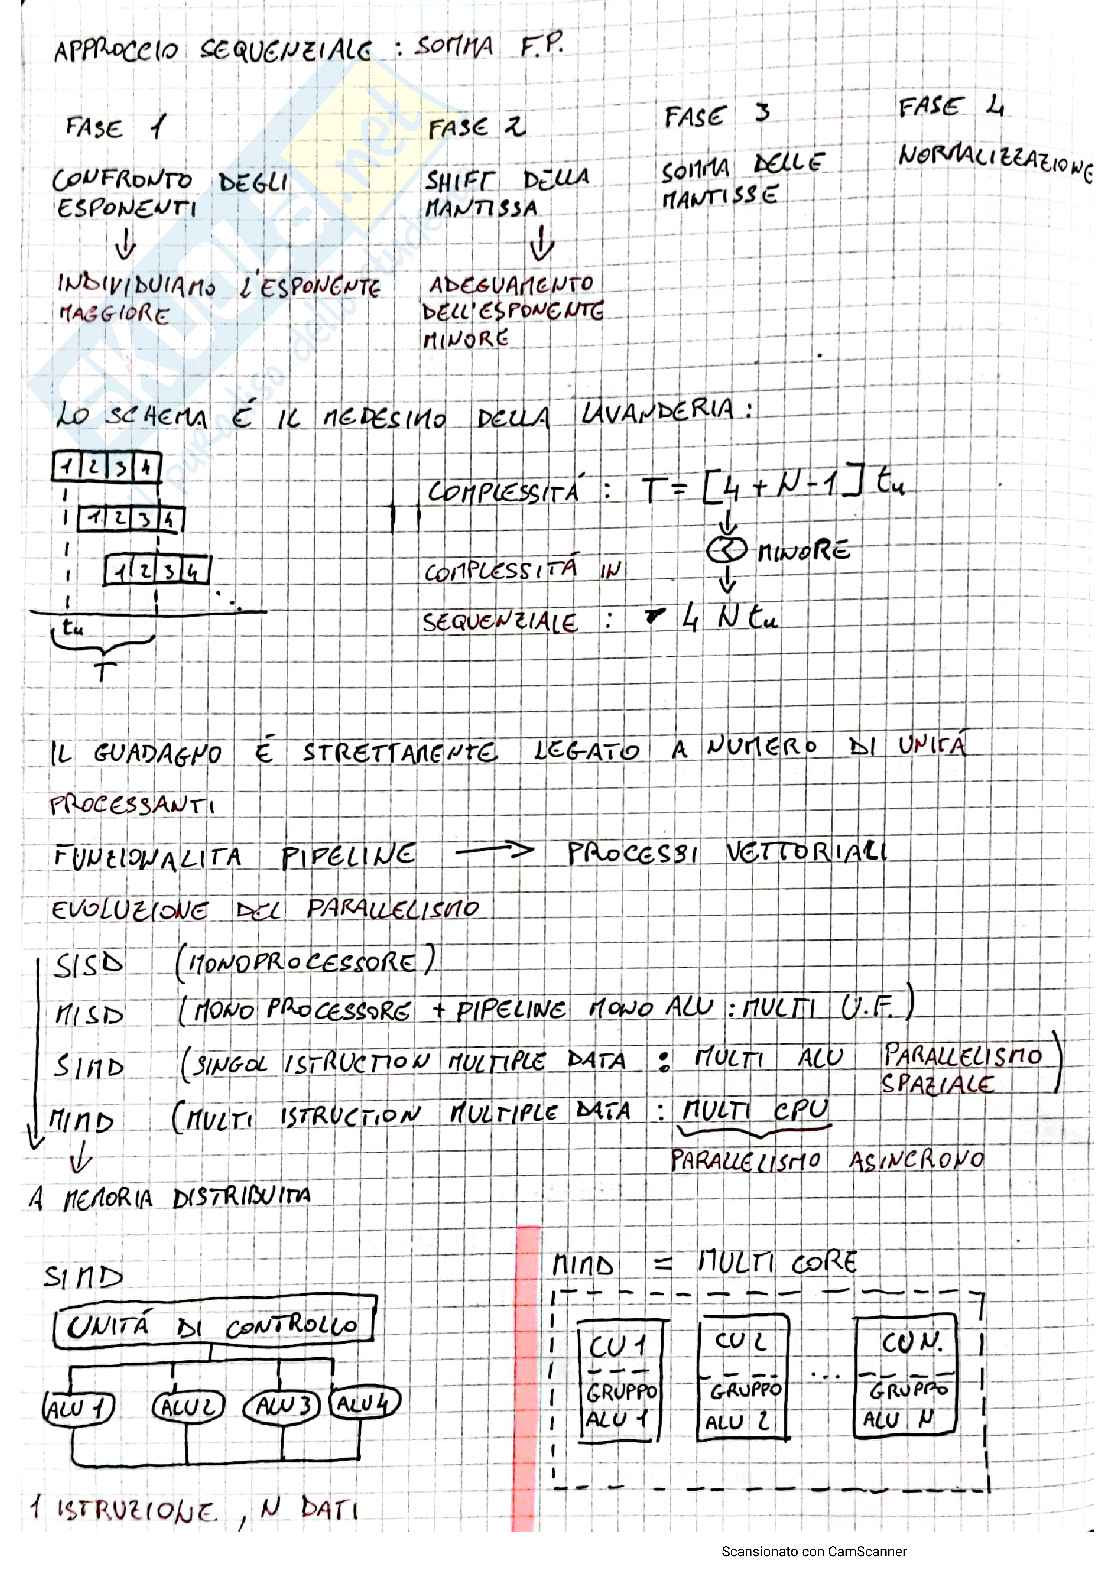 APPROCCIO SEQUENZIALE : SOMMA F.P.
FASE 1
CONFRONTO DEGLI
ESPONENTI
↓
INDIVIDUIAMO L'ESPONENTE
MAGGIORE
FASE 2
SHIFT DELLA
MANTISSA
↓
ADEGUAMENTO
DELL'ESPONENTE
MINORE
FASE 3
SOMMA DELLE
MANTISSE
FASE 4
NORMALIZZAZIONE
LO SCHEMA É IL MEDESIMO DELLA LAVANDERIA :
1 2 3 4
1 2 3 4
1 2 3 4
tu
T
COMPLESSITÁ : T = [4 + N - 1] tu
< MINORE
COMPLESSITÁ IN
SEQUENZIALE : 4 N tu
IL GUADAGNO É STRETTAMENTE LEGATO A NUMERO DI UNITÁ
PROCESSANTI
FUNZIONALITA PIPELINE → PROCESSI VETTORIALI
EVOLUZIONE DEL PARALLELISMO
SISD (MONOPROCESSORE)
MISD (MONO PROCESSORE + PIPELINE MONO ALU : MULTI U.F.)
SIMD (SINGOL ISTRUCTION MULTIPLE DATA : MULTI ALU PARALLELISMO
SPAZIALE)
MIMD (MULTI ISTRUCTION MULTIPLE DATA : MULTI CPU
PARALLELISMO ASINCRONO
A MEMORIA DISTRIBUITA
SIMD
UNITÁ DI CONTROLLO
ALU 1 ALU 2 ALU 3 ALU 4
1 ISTRUZIONE , N DATI
MIMD = MULTI CORE
CU 1 CU 2 CU N.
GRUPPO GRUPPO ... GRUPPO
ALU 1 ALU 2 ALU N
Scansionato con CamScanner